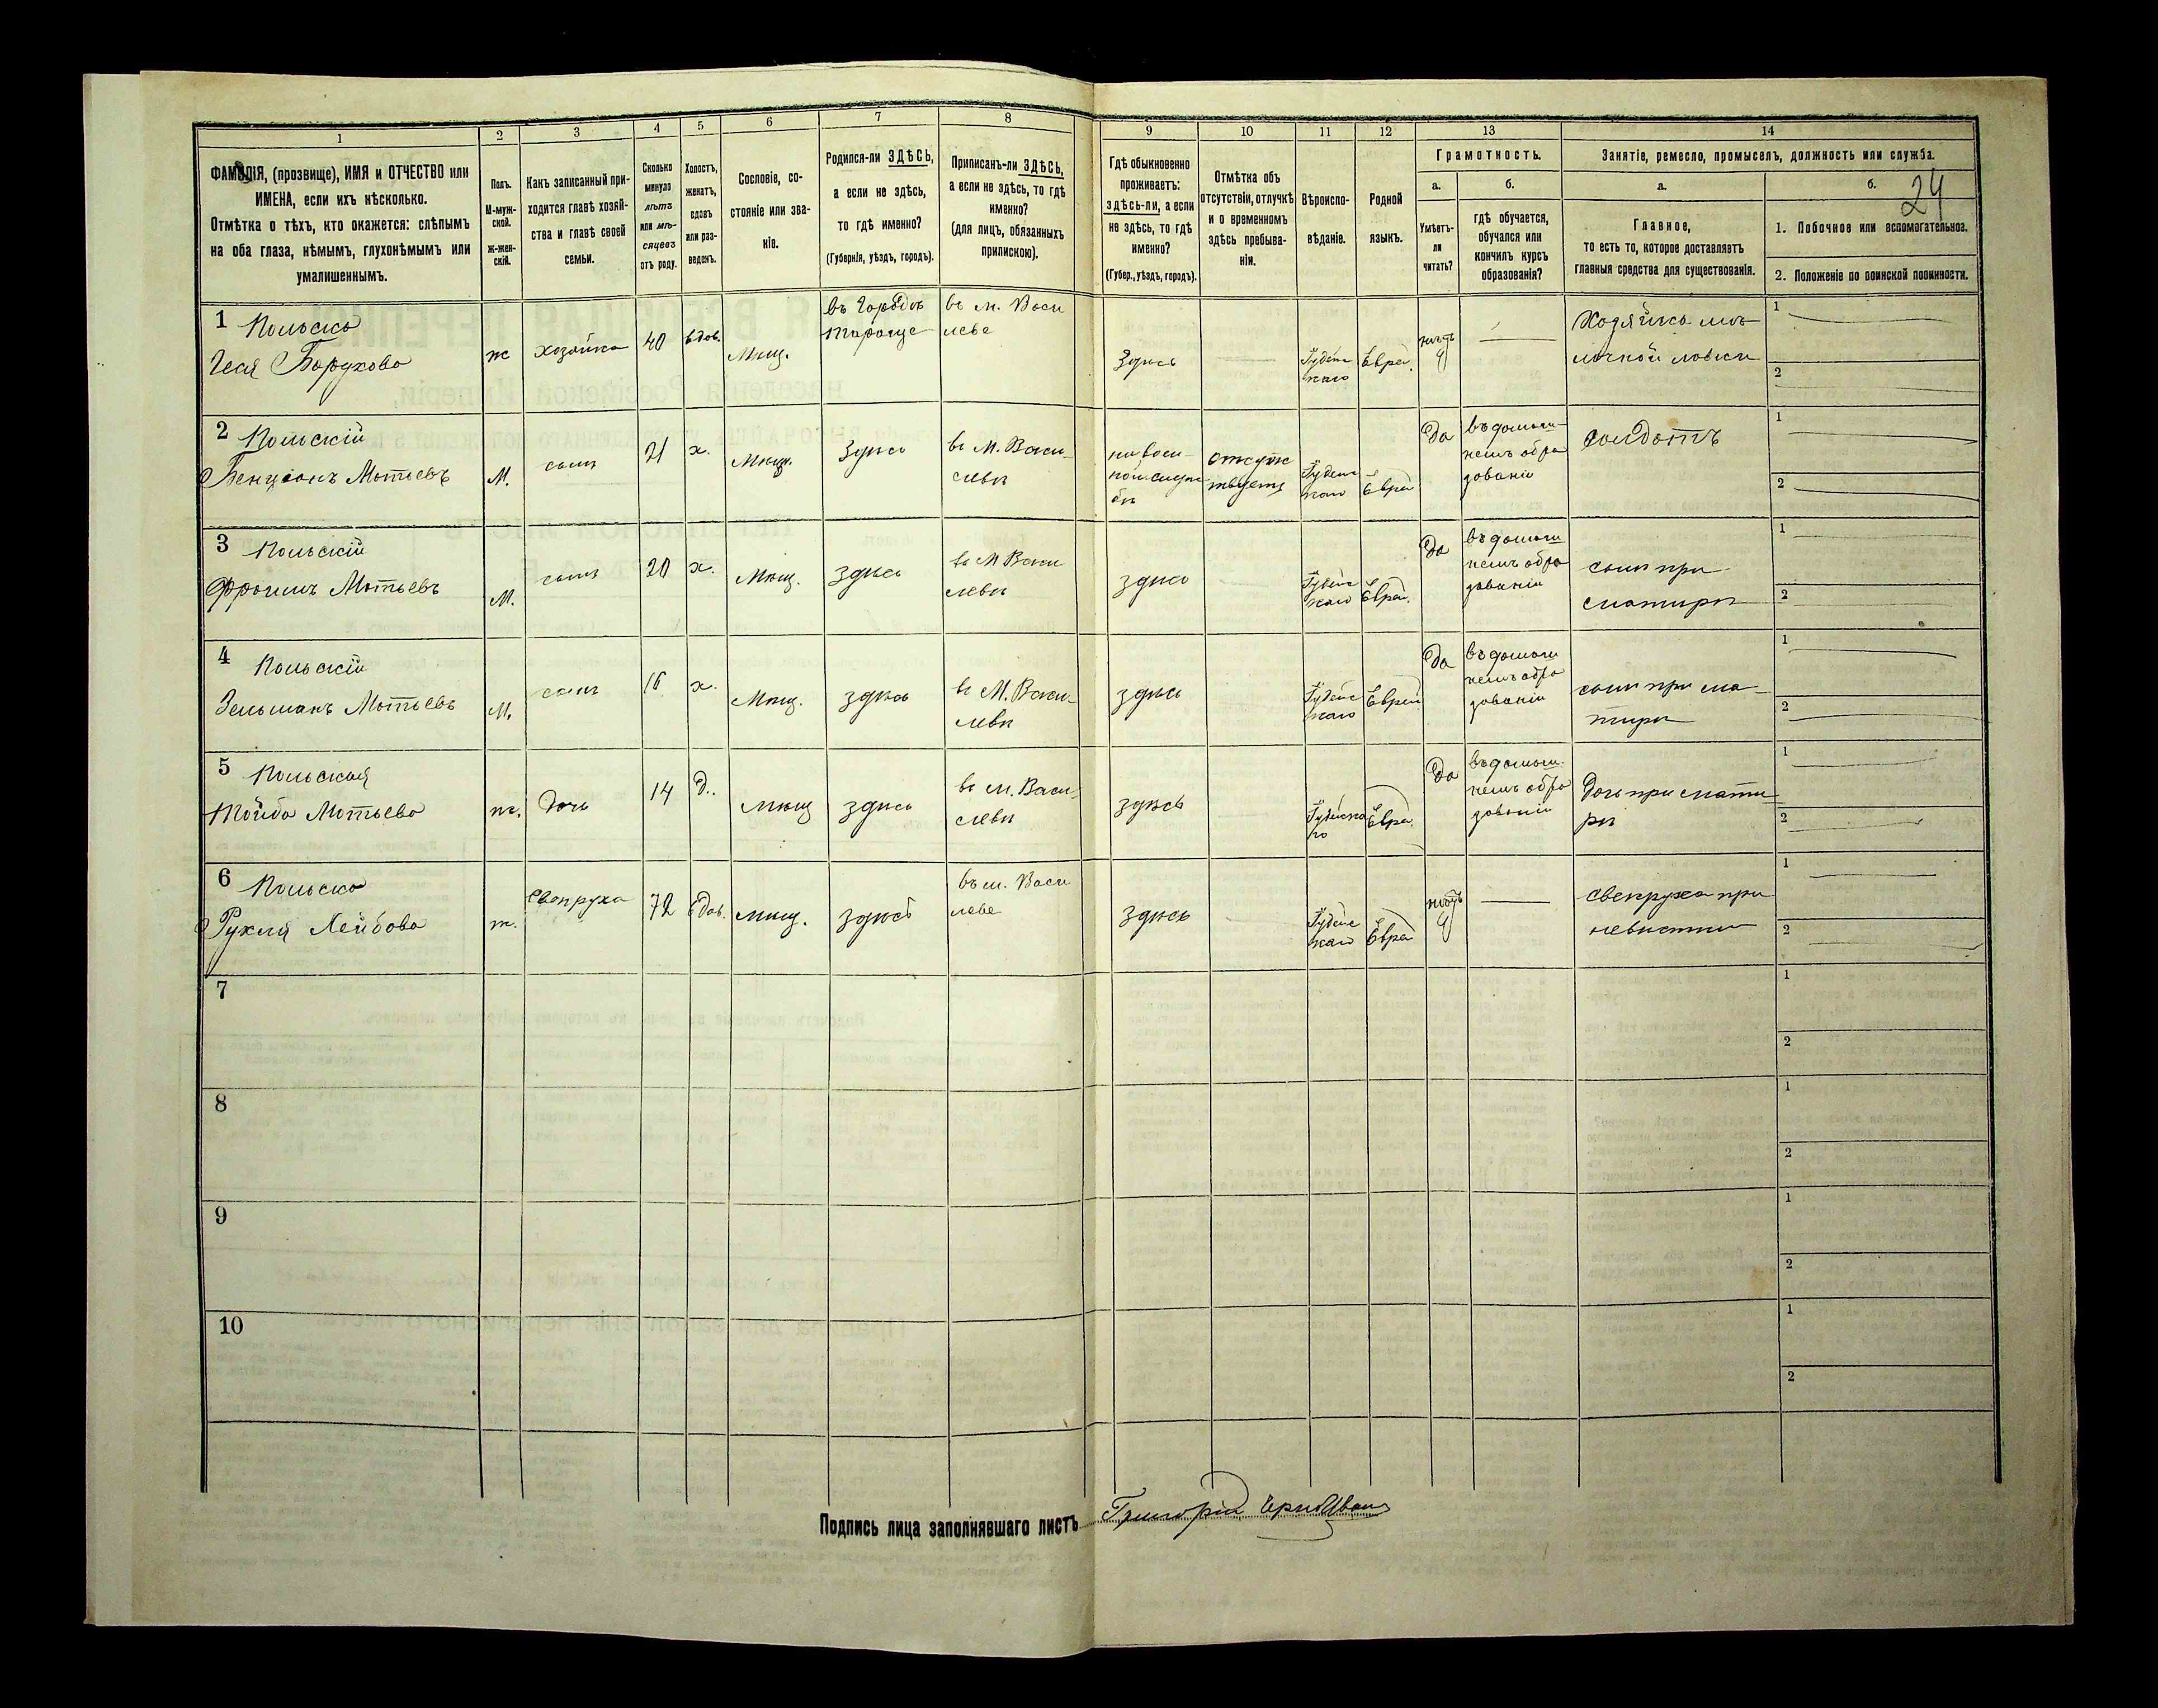 1
2
3
4
5
6
7
8
9
10
11
12
13
14
ФАМИЛІЯ, (прозвище), ИМЯ и ОТЧЕСТВО или
ИМЕНА, если ихъ нѣсколько.
Отмѣтка о тѣхъ, кто окажется: слѣпымъ
на оба глаза, нѣмымъ, глухонѣмымъ или
умалишеннымъ.
Полъ.
М-муж-
ской.
Ж-жен-
скій.
Какъ записанный при-
ходится главѣ хозяй-
ства и главѣ своей
семьи.
Сколько
минуло
лѣтъ
или мѣ-
сяцевъ
отъ роду.
Холостъ,
женатъ,
вдовъ
или раз-
веденъ.
Сословіе, со-
стояніе или зва-
ніе.
Родился-ли ЗДѢСЬ,
а если не здѣсь,
то гдѣ именно?
(Губернія, уѣздъ, городъ).
Приписанъ-ли ЗДѢСЬ,
а если не здѣсь, то гдѣ
именно?
(для лицъ, обязанныхъ
припискою).
Гдѣ обыкновенно
проживаетъ:
здѣсь-ли, а если
не здѣсь, то гдѣ
именно?
(Губер., уѣздъ, городъ).
Отмѣтка объ
отсутствіи, отлучкѣ
и о временномъ
здѣсь пребыва-
ніи.
Вѣроиспо-
вѣданіе.
Родной
языкъ.
Грамотность.
а.
Умѣетъ-
ли
читать?
б.
гдѣ обучается,
обучался или
кончилъ курсъ
образованія?
Занятіе, ремесло, промыселъ, должность или служба.
а.
Главное,
то есть то, которое доставляетъ
главныя средства для существованія.
б.
24
1. Побочное или вспомогательное.
2. Положеніе по воинской повинности.
1 Польска
Борухова
ж
хозяйка
40
вдов.
Мѣщ.
въ Городѣ
Тараще
въ м. Васи
леве
Здѣсь
Іудейс
каго
Еврей.
—
Хозяйка ме
лочной лавки
1
2
2 Польскій
Бенціонъ Мотьевъ
М.
сынъ
21
х.
Мѣщ.
Здѣсь
въ М. Васи-
левѣ
на воен-
ной служ
бѣ
отсутс
твуетъ
Іудейс
каго
Еврей
Да
въ домаш-
немъ обра
зованіи
солдатъ
1
2
3 Польскій
Фроимъ Мотьевъ
М.
сынъ
20
х.
Мѣщ.
здѣсь
въ М Васи
левѣ
здѣсь
Іудейс
каго
Еврей.
Да
въ домаш
немъ обра
зованіи
сынъ при
матири
1
2
4 Польскій
Зельманъ Мотьевъ
М.
сынъ
16
х.
Мѣщ.
здѣсь
въ М. Васи-
левѣ
здѣсь
Іудейс
каго
Еврей
Да
въ домаш
немъ обра
зованіи
сынъ при ма-
тири
1
2
5 Польская
Тойба Мотьева
ж.
Дочь
14
Д.
Мѣщ
здѣсь
въ м. Васи-
левѣ
здѣсь
Іудейска
го
Еврей.
Да
въ домаш.
немъ обра
зованіи
Дочь при мати-
рѣ
1
2
6 Польска
Рухля Лейбова
ж.
Свекруха
72
вдов.
Мѣщ.
здѣсь
въ м. Васи
леве
здѣсь
Іудейс
каго
Еврей
—
Свекруха при
невистки
1
2
7
1
2
8
1
2
9
1
2
10
1
2
Подпись лица заполнявшаго листъ Григорій